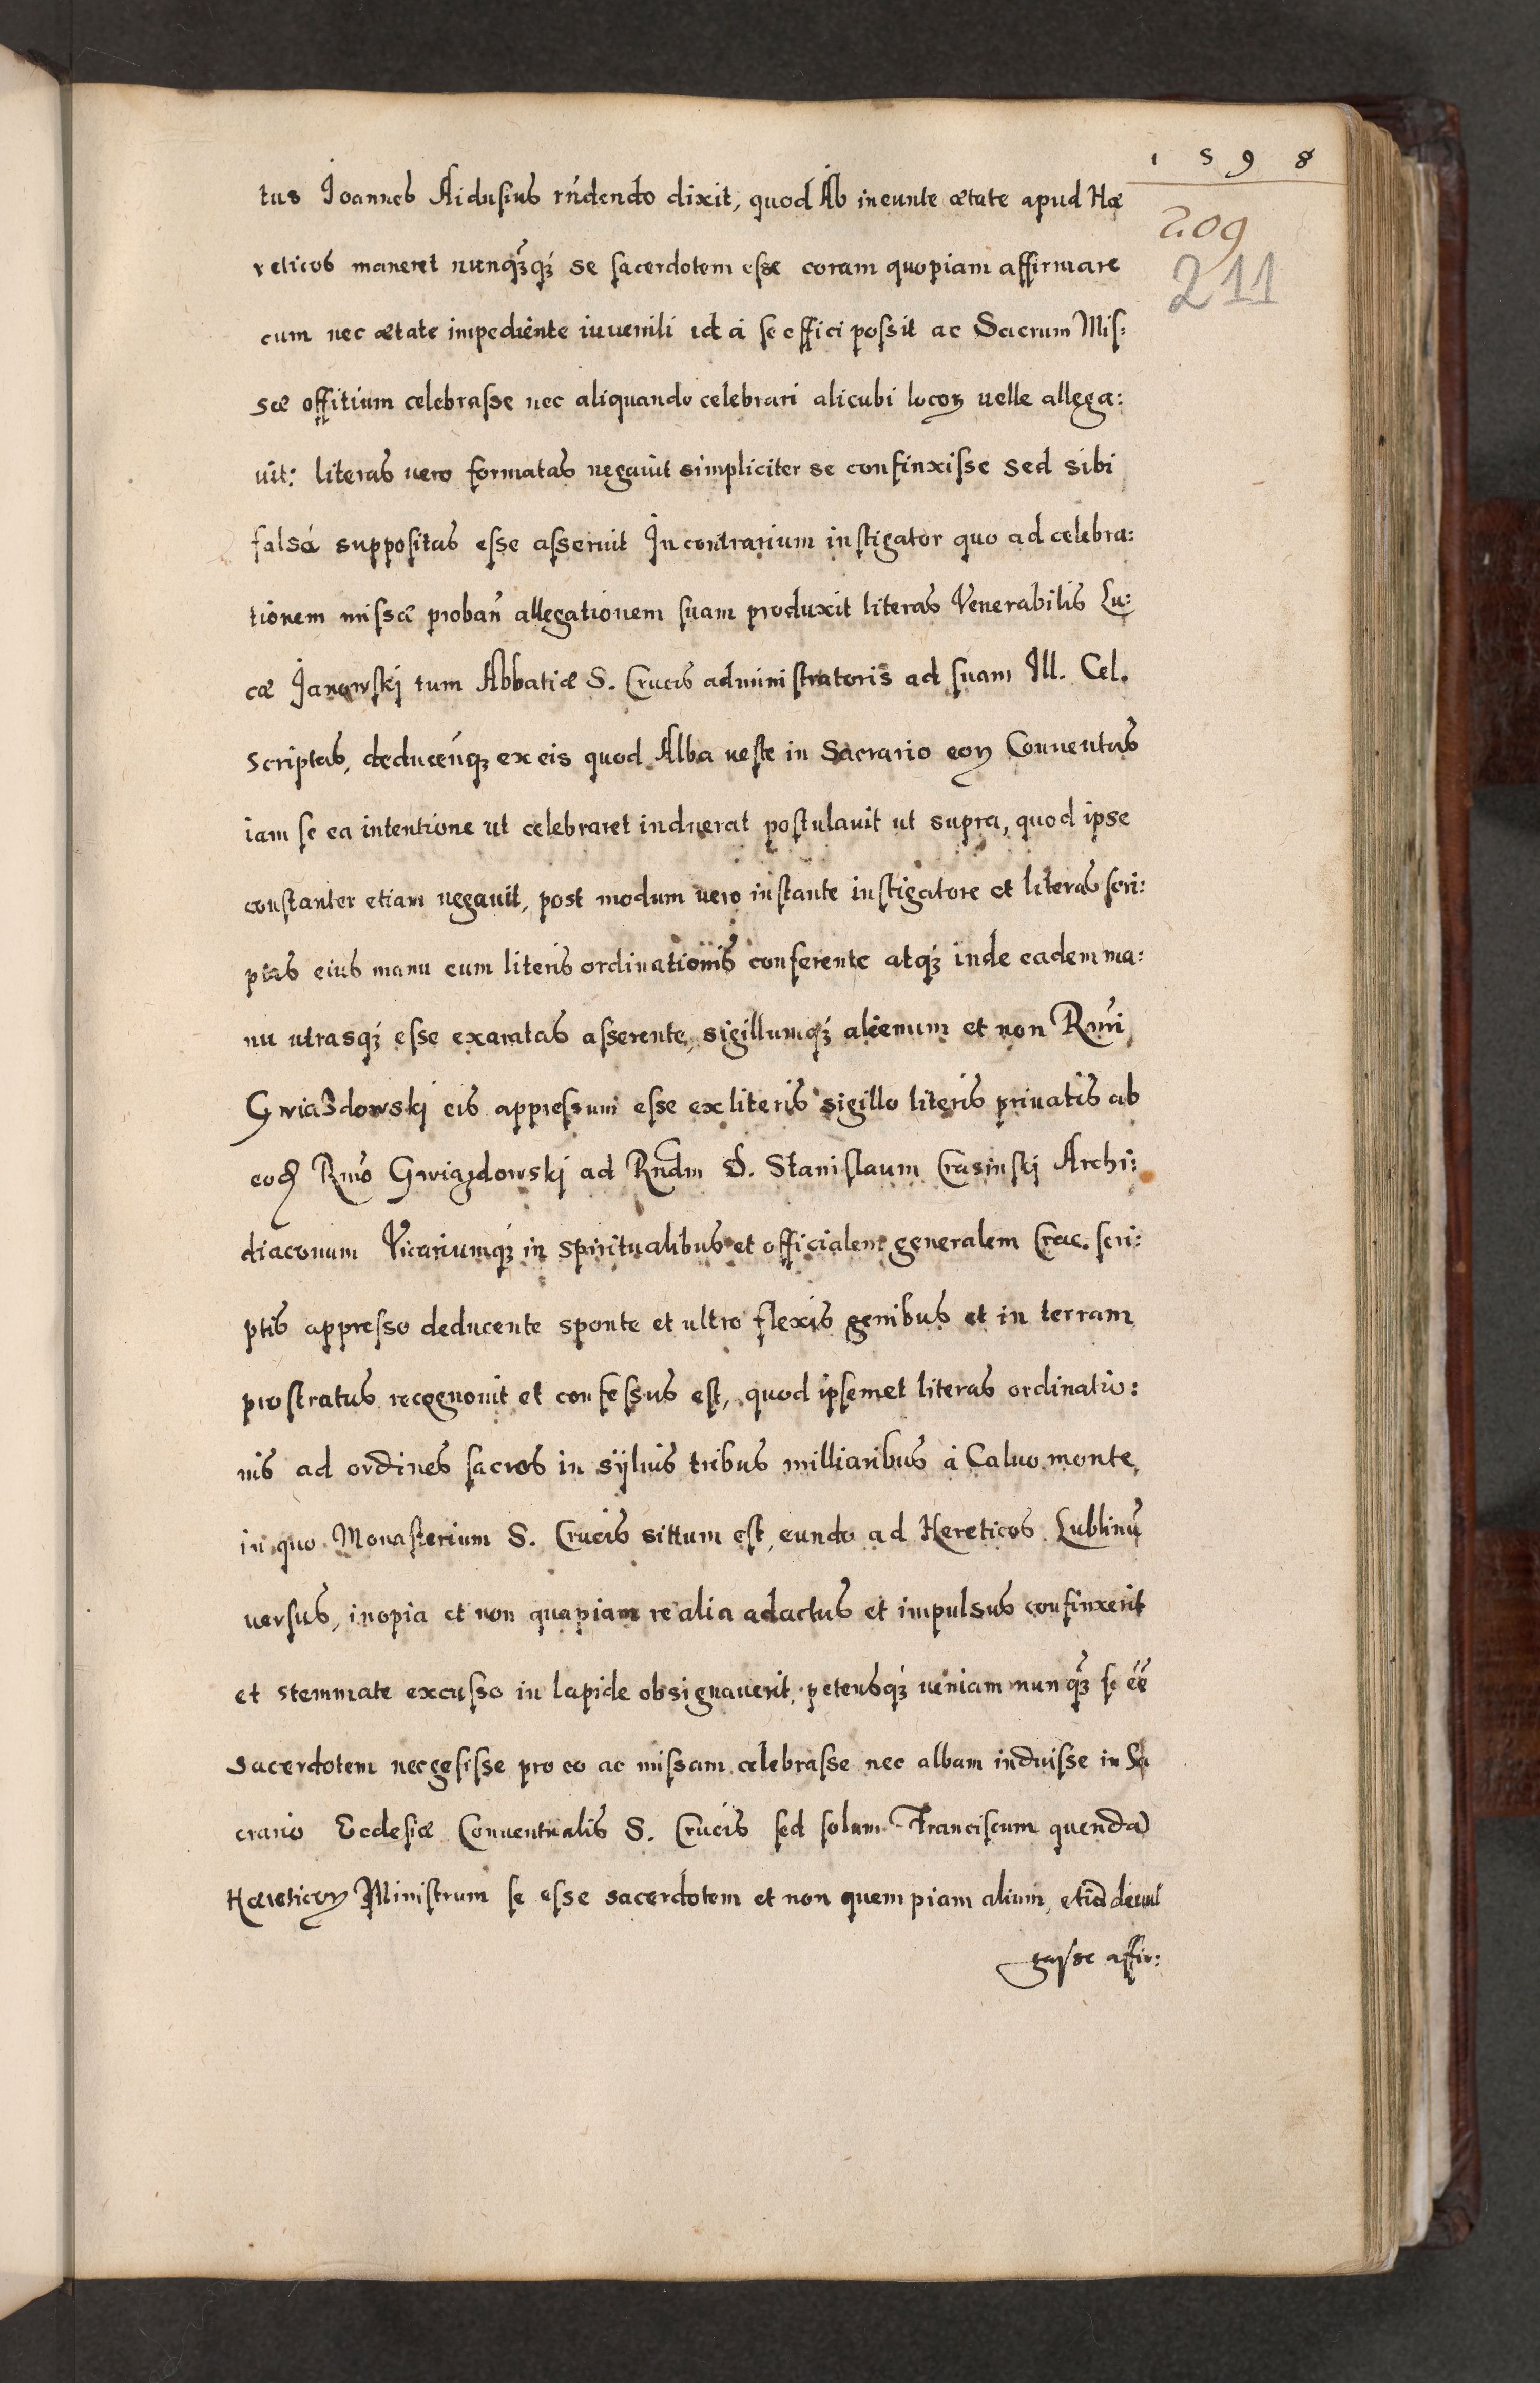 1598
209
211
tus Joannes Aidusius rñdendo dixit, quod Ab ineunte ætate apud Hæ
reticos maneret nunqꝫqꝫ se sacerdotem esse coram quopiam affirmare
cum nec ætate impediente iuuenili id à se effici possit ac Sacrum Mis:
sæ offitium celebrasse nec aliquando celebrari alicubi locoꝝ uelle allega:
uit: literas uero formatas negauit simpliciter se confinxisse sed sibi
falsá suppositas esse asseruit In contrarium instigator quo ad celebra:
tionem missæ probañ allegationem suam produxit literas Venerabilis Lu:
cæ Janowskj tum Abbatiæ S. Crucis administratoris ad suam Ill. Cel.
scriptas, deduceńqꝫ ex eis quod Alba ueste in Sacrario eoꝝ Conuentus
iam se ea intentione ut celebraret induerat postulauit ut supra, quod ipse
constanter etiam negauit, post modum uero instante instigatore et literas scri:
ptas eius manu cum literis ordinationis conferente atqꝫ inde eadem ma:
nu utrasqꝫ esse exaratas asserente, sigillumqꝫ alienum et non Rmi
Gwiazdowskj eis appressum esse ex literis sigillo literis priuatis ab
eod Rmo Gwiazdowskj ad Rndm D. Stanislaum Crasinskj Archi:
diaconum Vicariumqꝫ in spiritualibus et officialem generalem Crac. scri:
ptis appresso deducente sponte et ultro flexis genibus et in terram
prostratus recognouit et confessus est, quod ipsemet literas ordinatio:
nis ad ordines sacros in syluis tribus milliaribus à Caluo monte,
in quo Monasterium S. Crucis sittum est, eundo ad Hereticos Lublinū
uersus, inopia et non quapiam re alia adactus et impulsus confinxerit
et stemmate excusso in lapide obsignauerit, petensqꝫ ueniam nunqꝫ se ẽẽ
sacerdotem nec gesisse pro eo ac missam celebrasse nec albam induisse in Sa
crario Ecclesiæ Conuentualis S. Crucis sed solum Franciscum quendā
Hæreticoꝝ Ministrum se esse sacerdotem et non quempiam alium, etiā deuul
gasse affir: